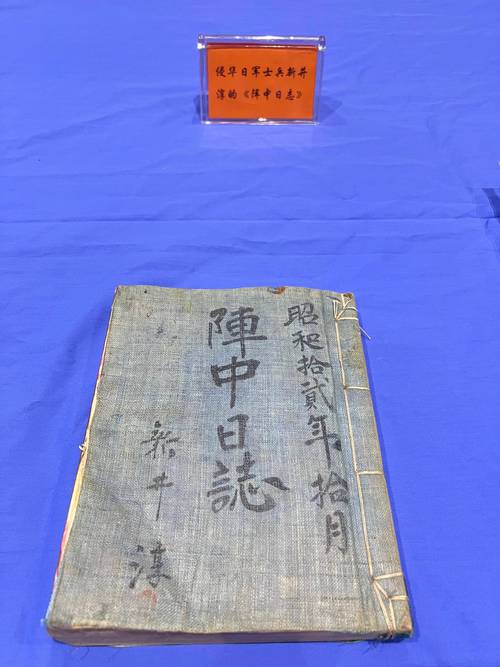 侵华日军士兵新井
淳的《阵中日志》
昭和拾貳年 拾月
陣中日誌
新井 淳